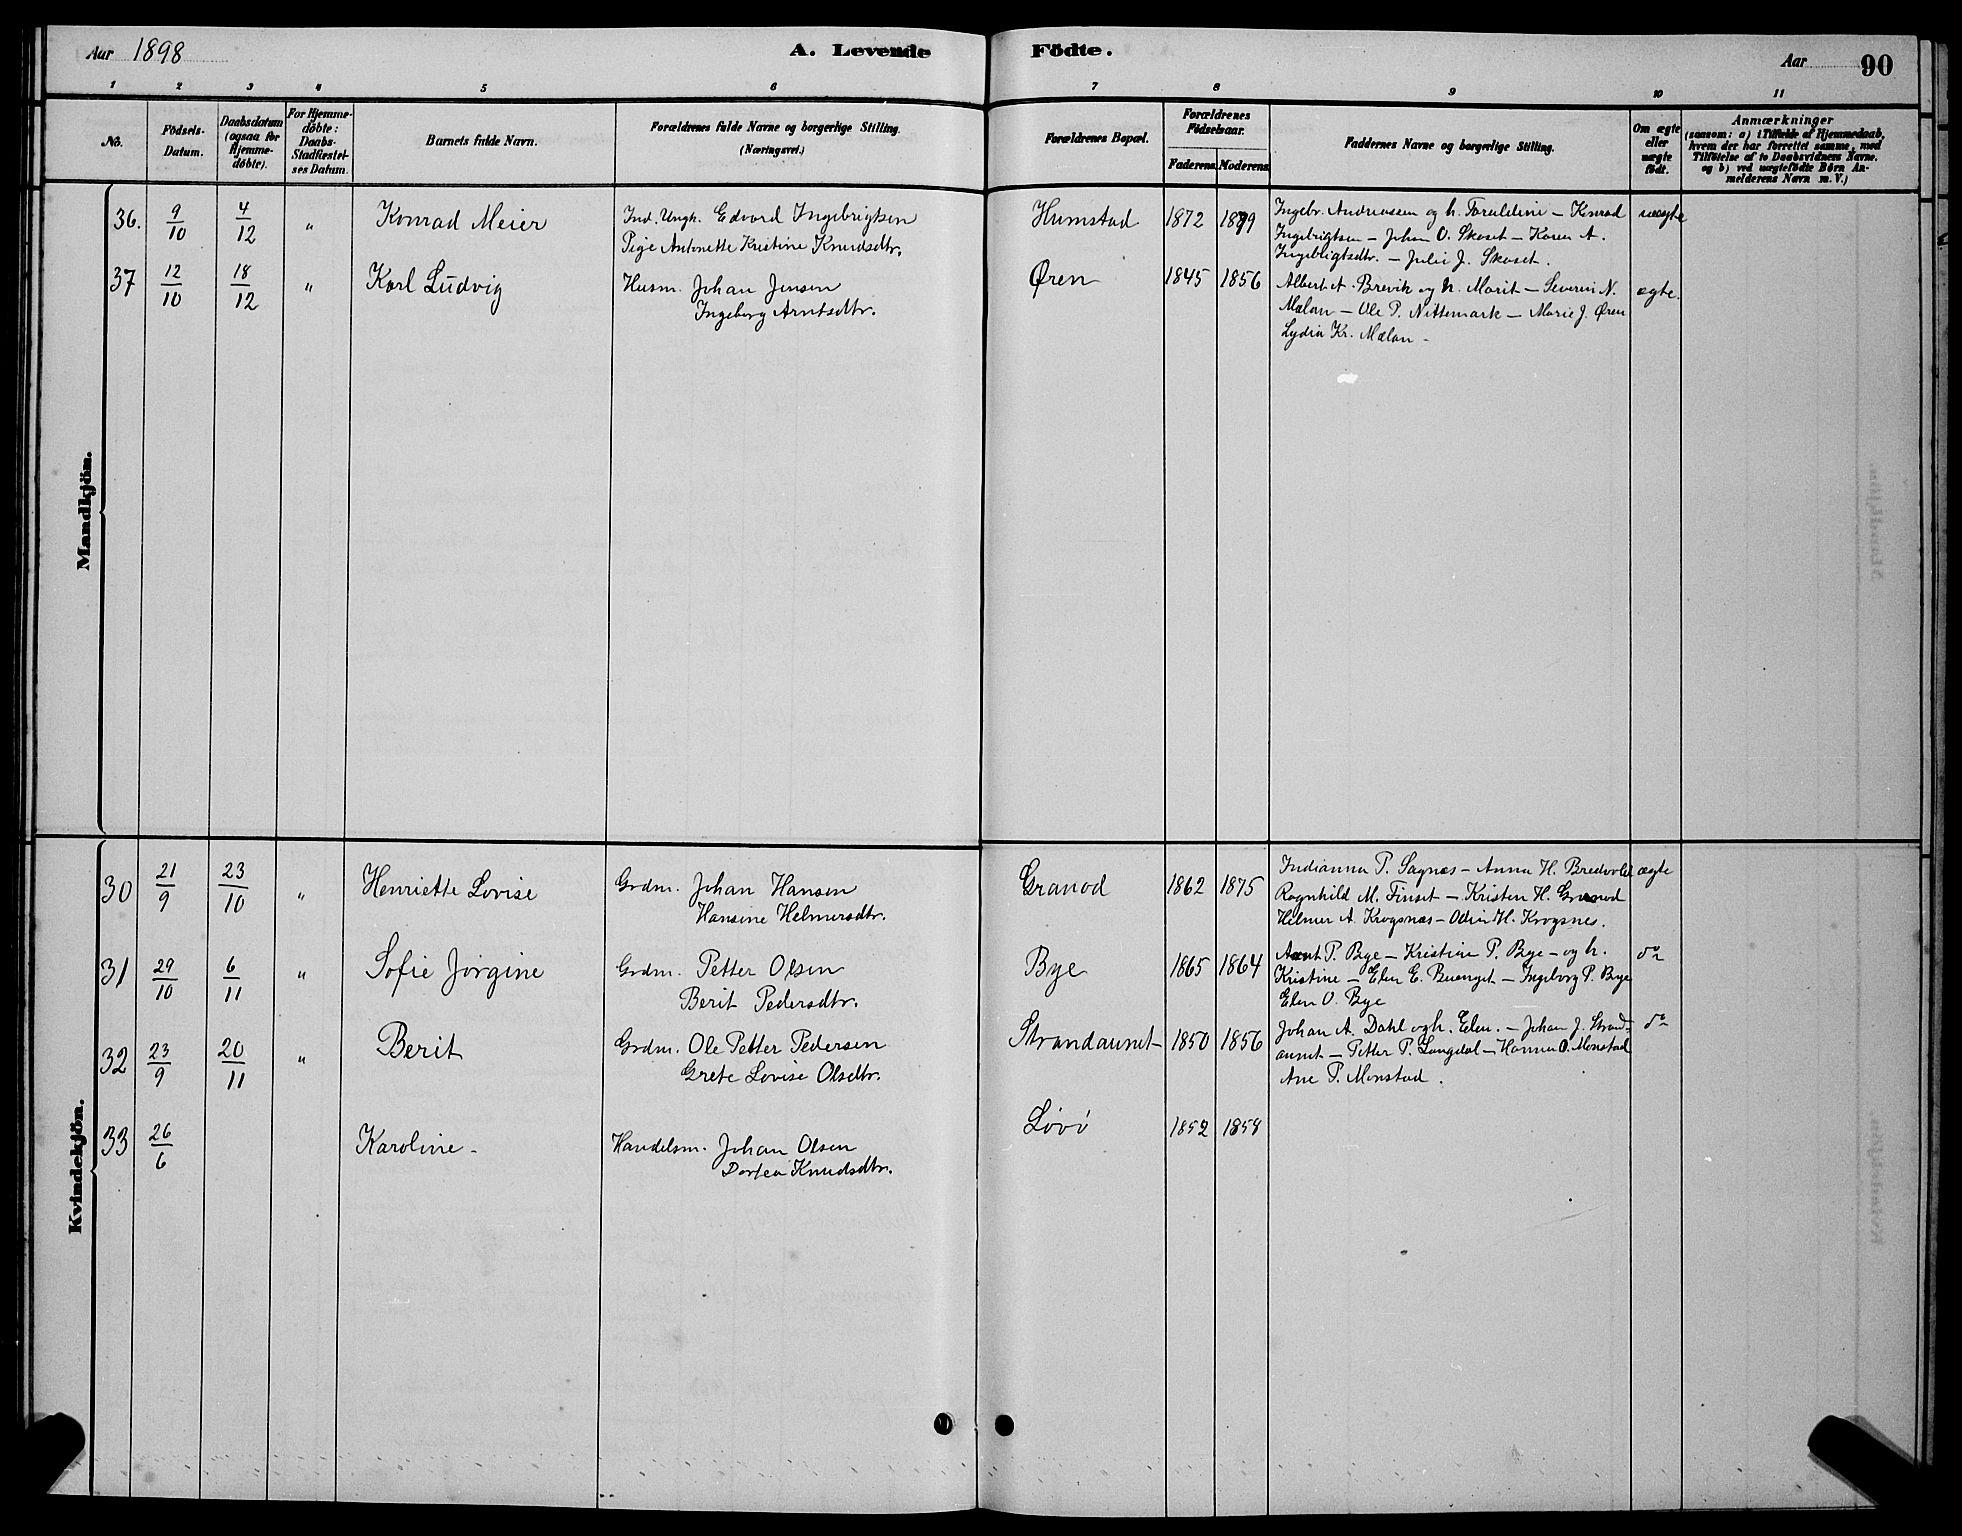 Aar 1898
A. Levende Födte.
Aar 90
1 2 3 4 5 6 7 8 9 10 11
No.
Födsels-
Datum.
Daabsdatum
(ogsaa for
Hjemme-
döbte).
For Hjemme-
döbte:
Daabs-
Stadfæstel-
ses Datum.
Barnets fulde Navn.
Forældrenes fulde Navne og borgerlige Stilling.
(Næringsvei.)
Forældrenes Bopæl.
Forældrenes
Födselsaar.
Faderens. Moderens.
Faddernes Navne og borgerlige Stilling.
Om ægte
eller
uægte
födt.
Anmærkninger
(saasom: a) i Tilfælde af Hjemmedaab,
hvem der har forrettet samme, med
Tilföielse af to Daabsvidners Navne.
og b) ved uægtefödte Börn An-
melderens Navn m. V.)
Mandkjön.
36. 9/10 4/12 " Konrad Meier
Ind. Ungk. Edvard Ingebrigtsen
Pige Antonette Kristine Knudsdtr.
Humstad 1872 1879
Ingebr. Andreassen og h. - Konrad
Ingebrigtsen - Johan O. Skoset - Karen A.
Ingebrigtsdtr. - Julie J. Skoset.
uægte
37 12/10 18/12 " Karl Ludvig
Husm. Johan Jensen
Ingeborg Arntsdtr.
Øren 1845 1856
Albert A. Brevik og h. Marit - Severin N.
Mælan - Ole P. Nittemark - Marie J. Øren
Lydia Kr. Mælan -
ægte.
Kvindekjön.
30 21/9 23/10 " Henriette Lovise
Grdm. Johan Hansen
Hansine Helmersdtr.
Granod 1862 1875
Indianna P. Sagnæs - Anna H. Bredvold
Ragnhild M. Finset - Kristen H. Granod
Helmer A. Krogsnæs - Odin H. Krogsnes.
ægte
31 29/10 6/11 " Sofie Jørgine
Grdm. Petter Olsen
Berit Pedersdtr.
Bye 1865 1864
Arnt P. Bye - Kristian P. Bye - og h.
Kristine - Elen E. - Ingeborg P. Bye
Elen O. Bye
do
32 23/9 20/11 " Berit
Grdm. Ole Petter Pedersen
Grete Lovise Olsdtr.
Strandaunet 1850 1856
Johan A. Dahl og h. Elen. - Johan J. Strand-
aunet - Petter P. Langdal - Hanna O. Monstad
Ane P. Monstad.
do
33 26/6 Karoline -
Handelsm. Johan Olsen
Dortea Knudsdtr.
Løvø 1852 1858